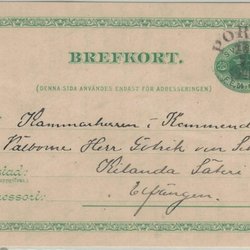 POR
BREFKORT.
FEM
(DENNA SIDA ANVÄNDES ENDAST FÖR ADRESSERINGEN)
Kammarherren i Kommend
Välborne Herr Gotrik von Sch
stad: Kilanda Säteri
Elfängen.
essort: